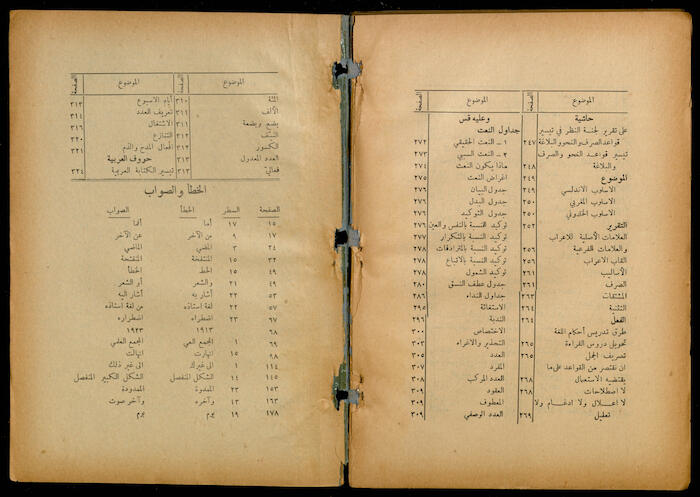 الموضوع الصفحة الموضوع الصفحة
حاشية
على تقرير لجنة النظر في تيسير
قواعد الصرف والنحو والبلاغة ٢٤٧
تيسير قواعد النحو والصرف
والبلاغة ٢٤٨
الموضوع ٢٤٩
الاسلوب الاندلسي ٢٤٩
الاسلوب المغربي ٢٥٠
الاسلوب الخلدوني ٢٥٠
التقرير ٢٥٢
العلامات الأصلية للاعراب
والعلامات الفرعية ٢٥٦
القاب الاعراب ٢٥٦
الأساليب ٢٦١
الصرف ٢٦١
المشتقات ٢٦٣
التثنية ٢٦٤
الفعل ٢٦٤
طرق تدريس أحكام اللغة
تحويل دروس القراءة ٢٦٥
تصريف الجمل ٢٦٥
ان نقتصر من القواعد على ما
يقتضيه الاستعمال ٢٦٨
لا اصطلاحات ٢٦٨
لا اعلال ولا ادغام ولا
تعليل ٢٦٩
وعليه قس
جداول النعت
١ - النعت الحقيقي ٢٧٢
٢ - النعت السببي ٢٧٣
ماذا يكون النعت ٢٧٤
اغراض النعت ٢٧٥
جدول البيان ٢٧٦
جدول البدل ٢٧٦
جدول التوكيد ٢٧٦
توكيد النسبة بالنفس والعين ٢٧٦
توكيد النسبة بالتكرار ٢٧٧
توكيد النسبة بالمترادفات ٢٧٨
توكيد النسبة بالاتباع ٢٧٨
توكيد الشمول ٢٧٨
جدول عطف النسق ٢٨٠
جداول النداء ٢٨٦
الاستغاثة ٢٩٥
الندبة ٢٩٦
الاختصاص ٣٠٠
التحذير والاغراء ٣٠٣
العدد ٣٠٥
المفرد ٣٠٧
العدد المركب ٣٠٨
العقود ٣٠٩
المعطوف ٣٠٩
العدد الوصفي ٣٠٩
الموضوع الصفحة الموضوع الصفحة
المئة ٣١٠
الألف ٣١١
بضع وبضعة ٣١١
النيّف ٣١٢
الكسور ٣١٢
العدد المعدول ٣١٣
فعاليّ ٣١٣
أيام الاسبوع ٣١٣
تعريف العدد ٣١٤
الاشتغال ٣١٦
التنازع ٣٢٠
افعال المدح والذم ٣٢١
حروف العربية
تيسير الكتابة العربية ٣٢٤
الخطأ والصواب
الصفحة السطر الخطأ الصواب
١٥ ١٧ أما أفما
١٧ ٩ من الآخر عن الآخر
٢٤ ٣ المضي الماضي
٣٢ ١٥ المنتفخة المنفتحة
٤٩ ١٥ الخط الخطأ
٤٩ ٢١ والشعر أو الشعر
٥٣ ٢٢ أشار به أشار اليه
٥٧ ٢٢ لغة استاذه من لغة استاذه
٦٧ ٢٣ اضطراء اضطراره
٦٨ ١٩١٣ ١٩٢٣
٦٩ ١ المجمع العمي المجمع العلمي
٩٨ ١٥ انهارت انهالت
١١٤ ١ الى غيرك الى غير ذلك
١٤٥ ١٤ الشكل المنفصل الشكل الكبير المنفصل
١٥٣ ٢٣ الممدوة الممدودة
١٦٣ ٤ وآخره وآخر صوت
١٧٨ ١٩ يوم